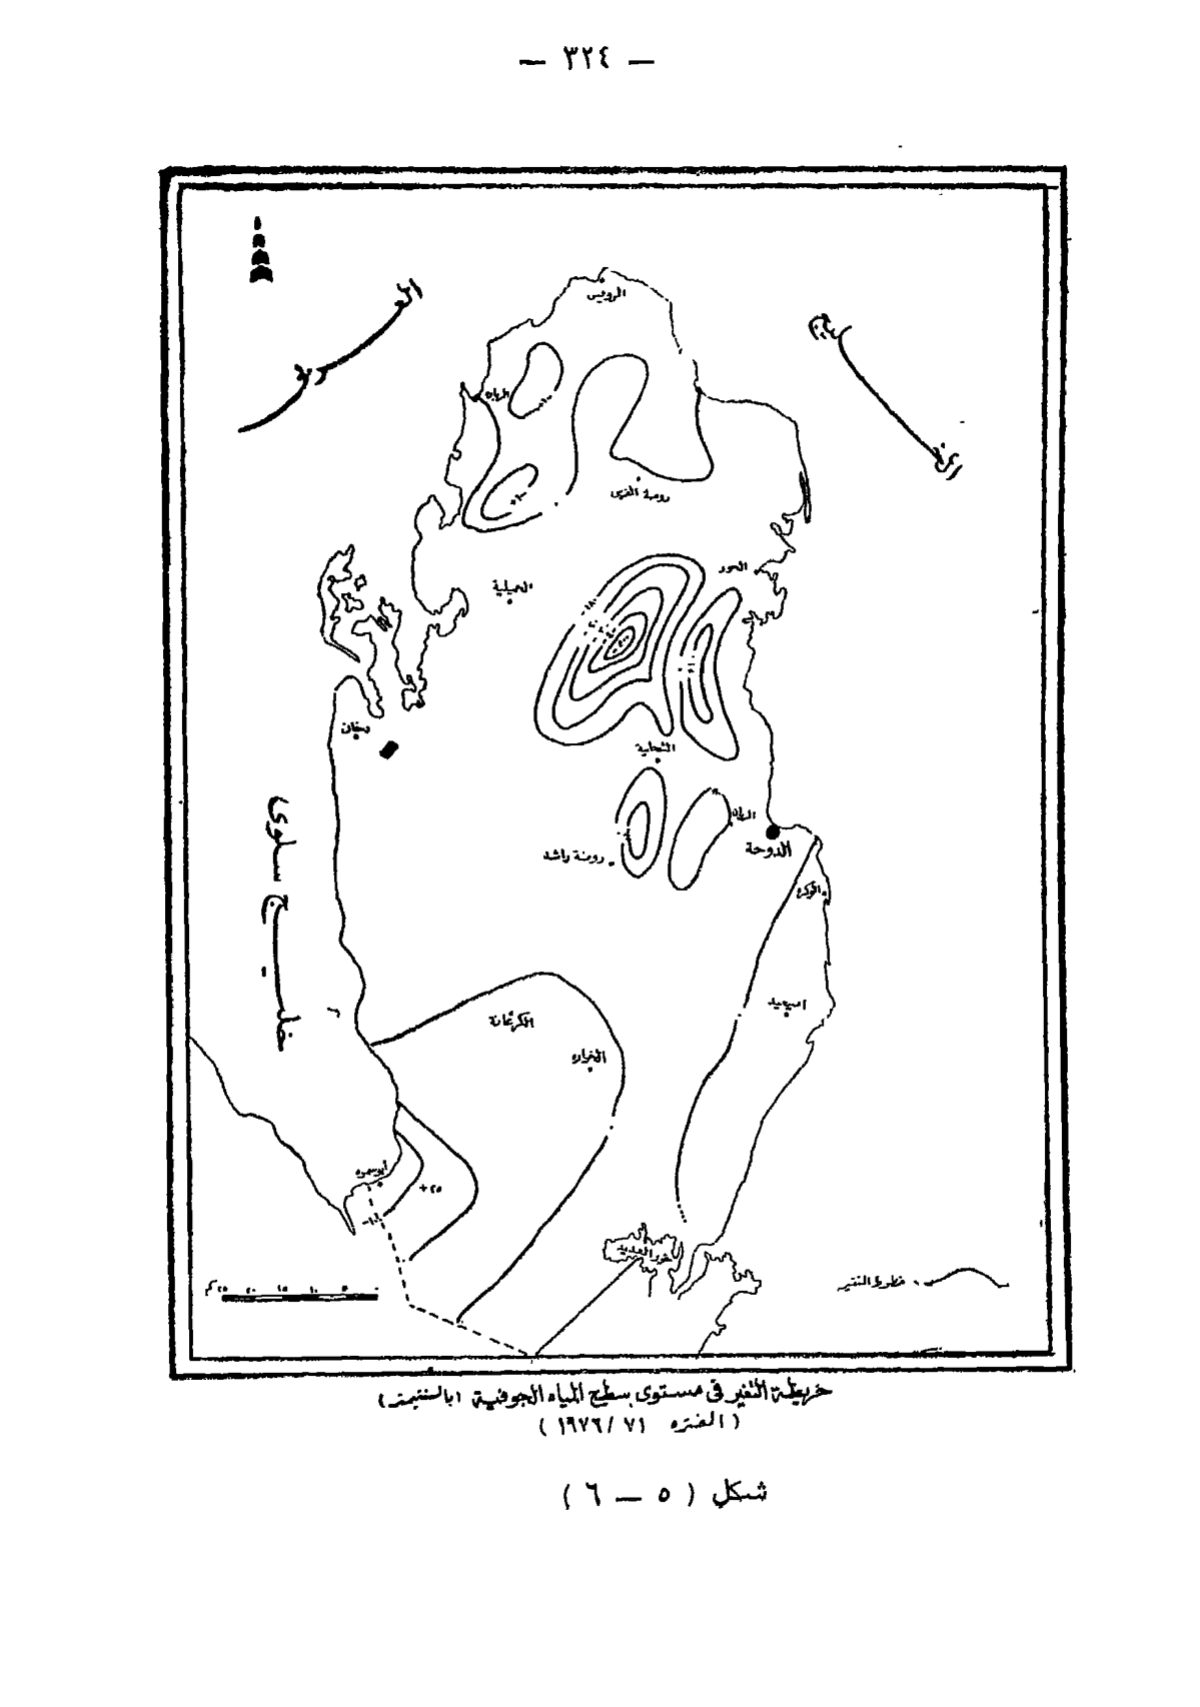 — ٣٢٤ —
الرويس
روضة الفرس
الخور
الجميلية
دخان
الشحانية
الريان
الدوحة
روضة راشد
الوكره
خليج سلوى
امسيعيد
الكرعانة
الخراره
أبو سمره
+٢٥
خور العديد
خطوط التغير
٢٥ كم ٢٠ ١٥ ١٠ ٥ ٠
خريطة التغير فى مستوى سطح المياه الجوفية (بالسنتيمتر)
(الفتره ٧١ / ١٩٧٦)
شكل (٥ — ٦)